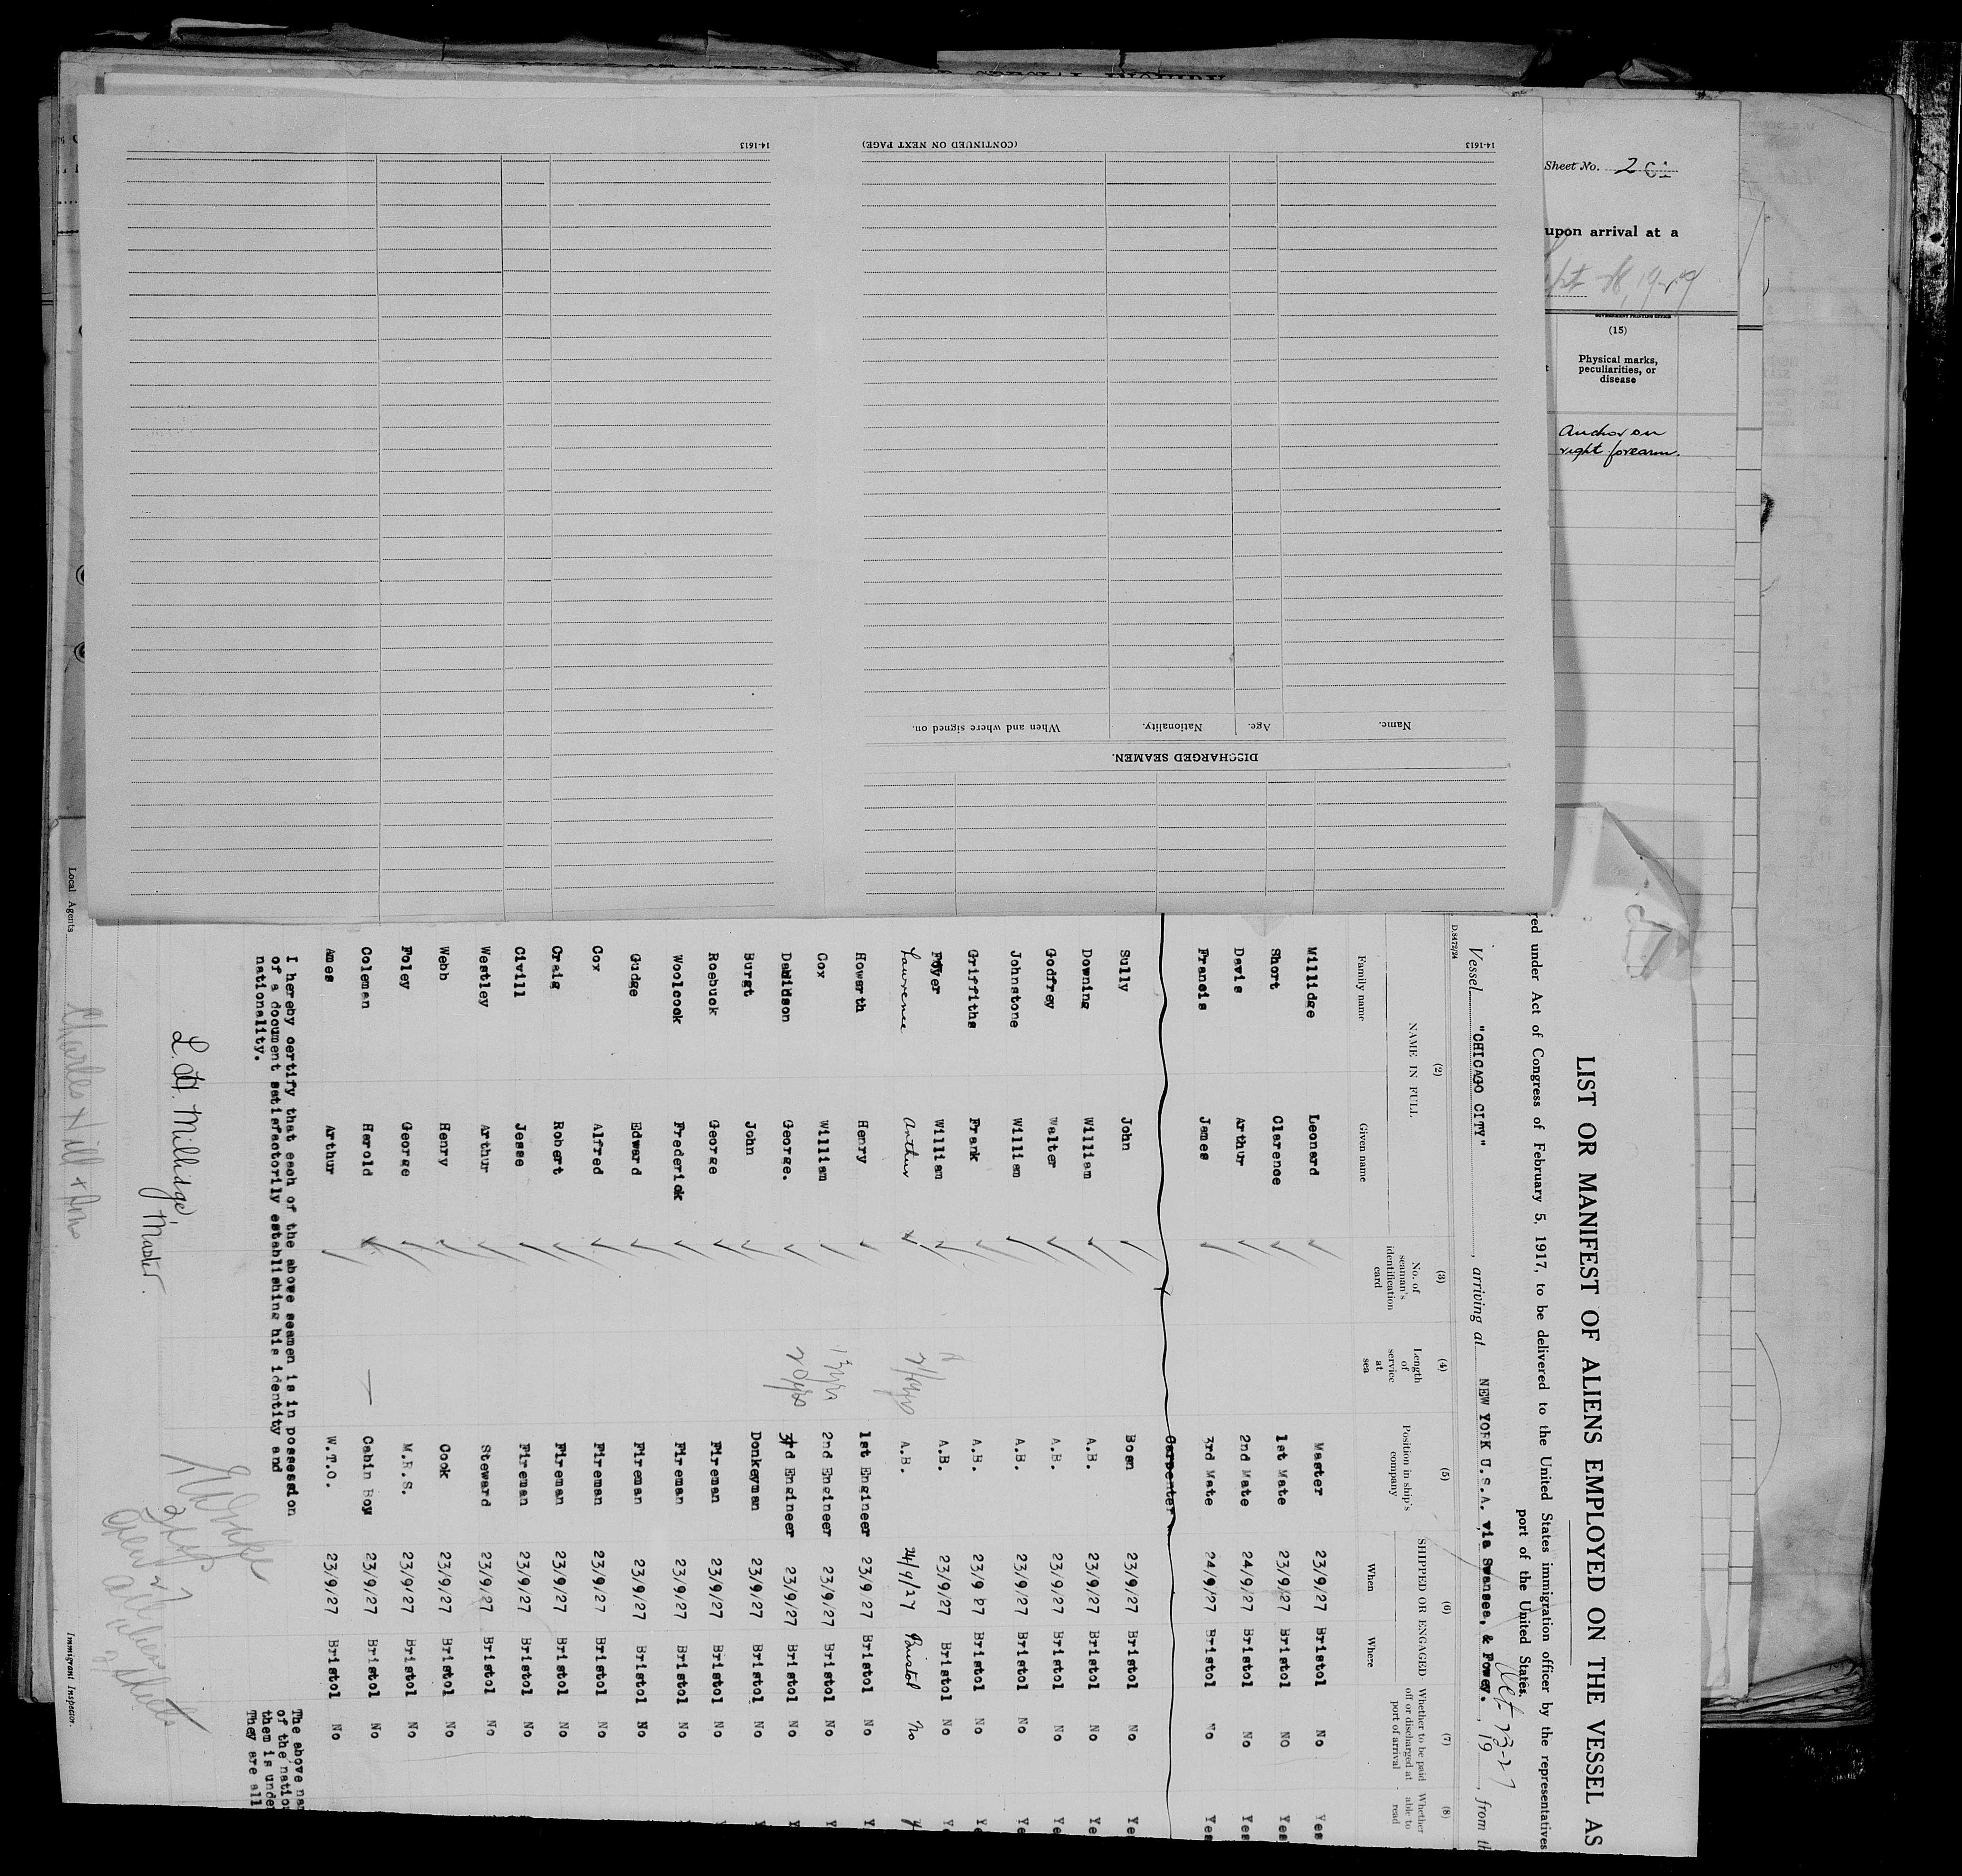 Sheet No. 2
upon arrival at a
GOVERNMENT PRINTING OFFICE
(15)
Physical marks,
peculiarities, or
disease
Anchor on
right forearm.
14-1613
(CONTINUED ON NEXT PAGE)
14-1613
DISCHARGED SEAMEN.
Name. Age. Nationality. When and where signed on.
LIST OR MANIFEST OF ALIENS EMPLOYED ON THE VESSEL AS
red under Act of Congress of February 5, 1917, to be delivered to the United States immigration officer by the representatives
port of the United States.
Vessel "CHICAGO CITY", arriving at NEW YORK U.S.A. via Swansea, & Fowey. Oct 23-27, 19 , from th
D.8472/724
(2) (3) (4) (5) (6) (7) (8)
NAME IN FULL
Family name Given name
No. of seaman's identification card
Length of service at sea
Position in ship's company
SHIPPED OR ENGAGED
When Where
Whether to be paid off or discharged at port of arrival
Whether able to read
Millidge Leonard Master 23/9/27 Bristol No Yes
Short Clarence 1st Mate 23/9/27 Bristol NO Yes
Davis Arthur 2nd Mate 24/9/27 Bristol No Yes
Francis James 3rd Mate 24/9/27 Bristol No Yes
Carpenter
Sully John Bosn 23/9/27 Bristol No Ye
Downing William A.B. 23/9/27 Bristol No Ye
Godfrey Walter A.B. 23/9/27 Bristol No Ye
Johnstone William A.B. 23/9/27 Bristol No Ye
Griffiths Frank A.B. 23/9 27 Bristol No Ye
William A.B. 23/9/27 Bristol No Ye
Lawrence Arthur A.B. 24/9/27 Bristol No Y
Howarth Henry 1st Engineer 23/9/27 Bristol No Y
Cox William 13yrs 2nd Engineer 23/9/27 Bristol No Y
George. 20yrs 3rd Engineer 23/9/27 Bristol No Y
Burgt John Donkeyman 23/9/27 Bristol No Y
Roebuck George Fireman 23/9/27 Bristol No
Woolcock Frederick Fireman 23/9/27 Bristol No
Gudge Edward Fireman 23/9/27 Bristol No
Cox Alfred Fireman 23/9/27 Bristol No
Craig Robert Fireman 23/9/27 Bristol No
Civill Jesse Fireman 23/9/27 Bristol No
Westley Arthur Steward 23/9/27 Bristol No
Webb Henry Cook 23/9/27 Bristol No
Foley George M.R.S. 23/9/27 Bristol No
Coleman Harold — Cabin Boy 23/9/27 Bristol No
Ames Arthur W.T.O. 23/9/27 Bristol No
I hereby certify that each of the above seamen is in possession
of a document satisfactorily establishing his identity and
nationality.
The above na
of the natio
them is unde
They are all
L. H. Millidge, Master.
Charles Hill & Sons
Local Agents
Immigrant Inspector.